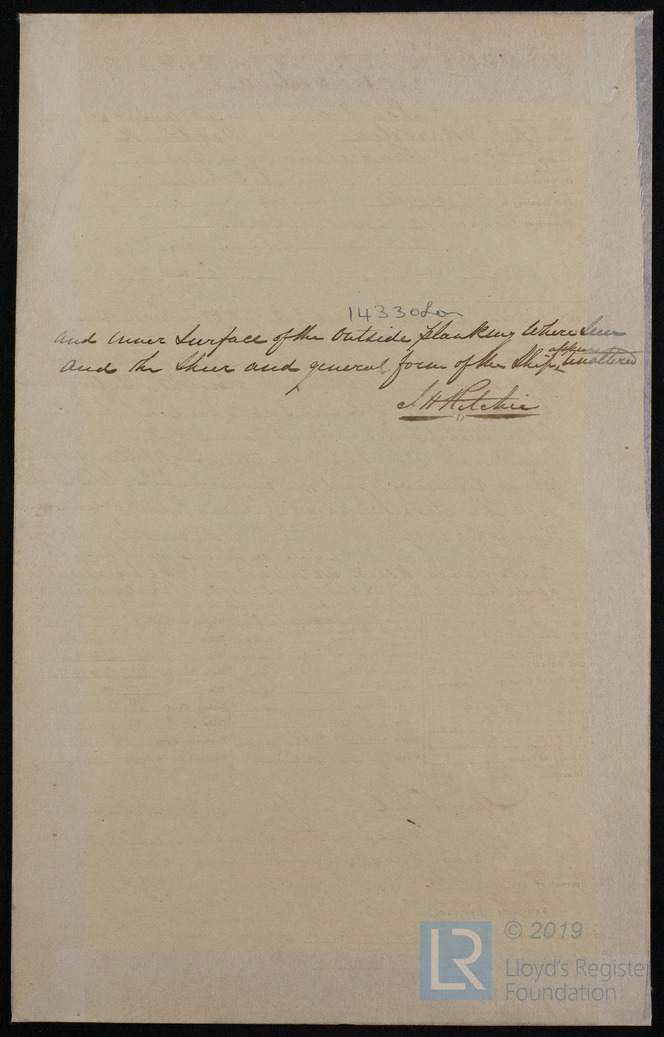 14330 Lon
and inner Surface of the Outside planking Where Seen
appears
and the Sheer and general form of the Ship unaltered
J H Ritchie
LR
© 2019
Lloyd's Register
Foundation